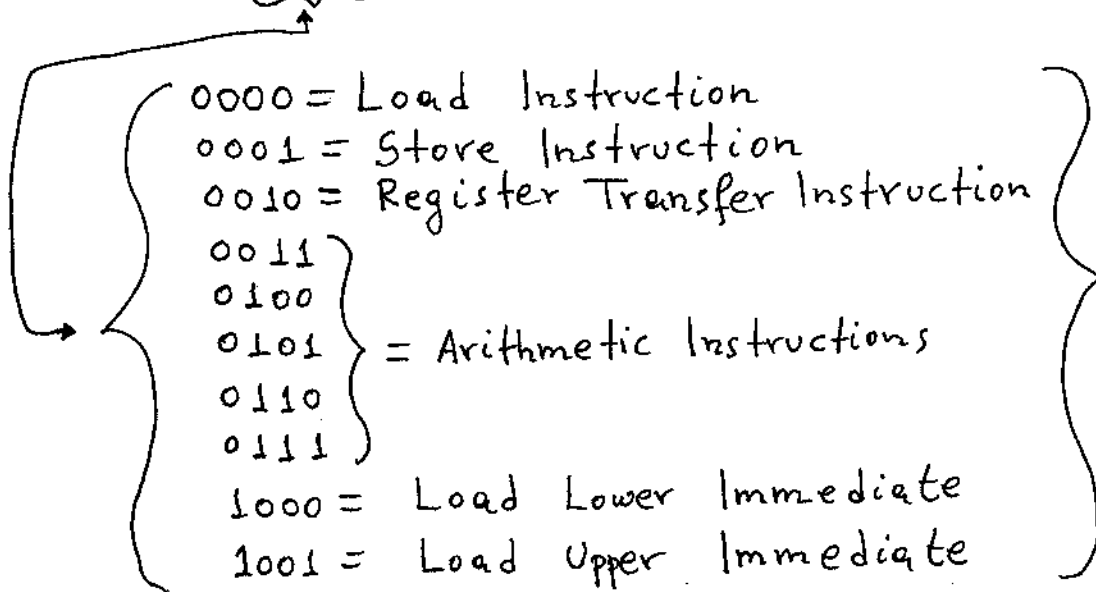 0000 = Load Instruction
0001 = Store Instruction
0010 = Register Transfer Instruction
0011
0100
0101 = Arithmetic Instructions
0110
0111
1000 = Load Lower Immediate
1001 = Load Upper Immediate